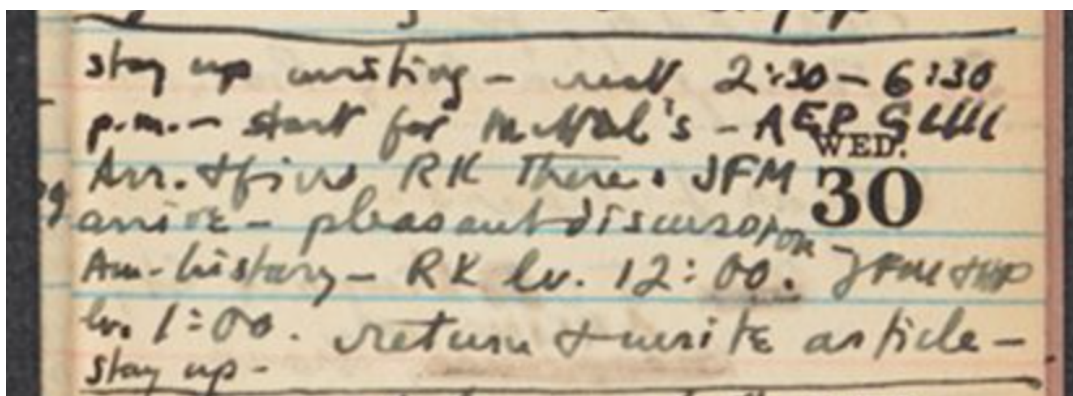 stay up writing – rest 2:30 – 6:30
p.m. – start for – AEP
WED.
Arr. & find RK there. JFM
30
arrive – pleasant discussion –
Am. history – RK lv. 12:00. JFM & HP
lv. 1:00. return & write article –
stay up –